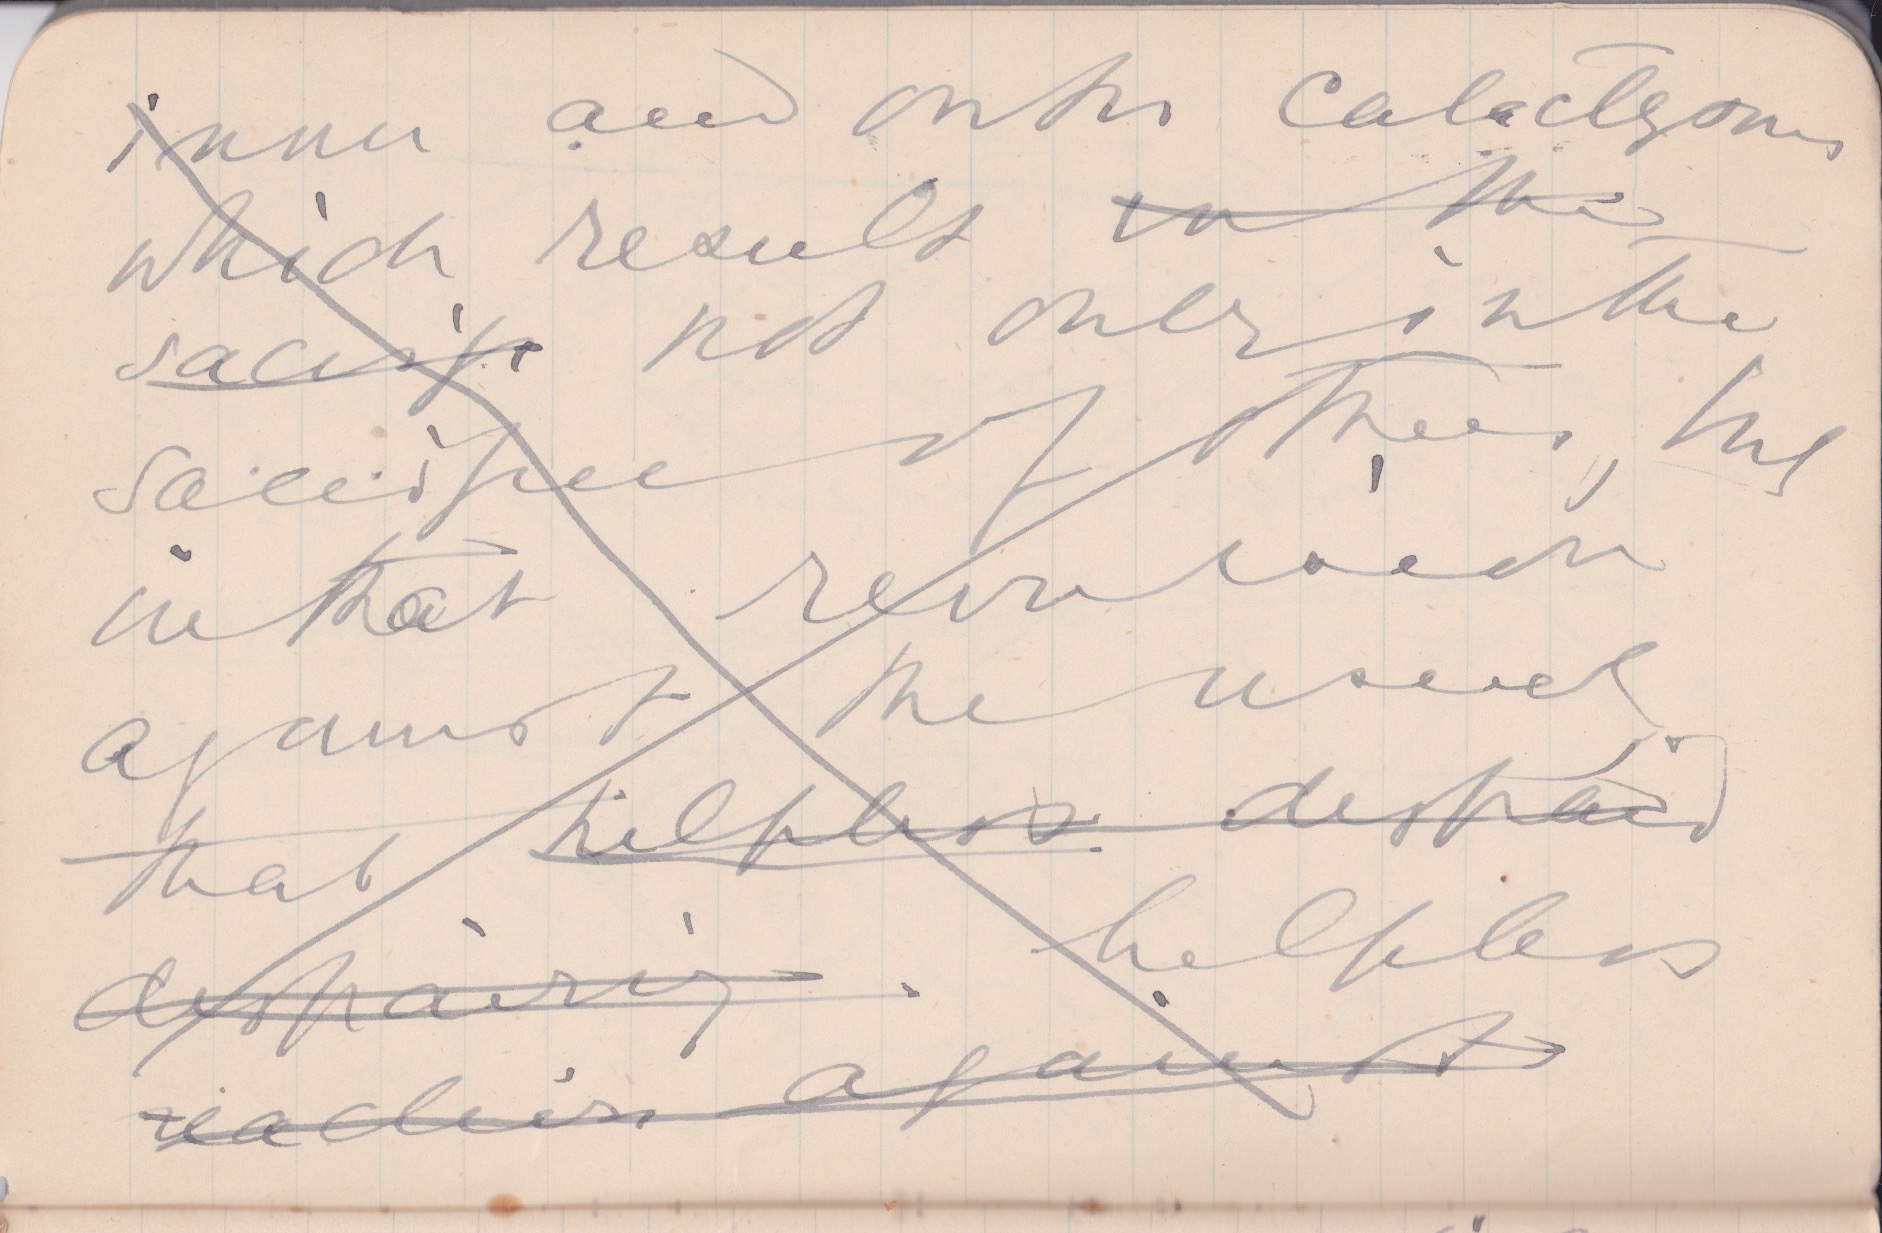 inner and outer cataclysms
which results in the
sacrifi not only in the
sacrifice of these, but
in that revulsion
against the used
that helpless despair
despairing helpless
reaction against